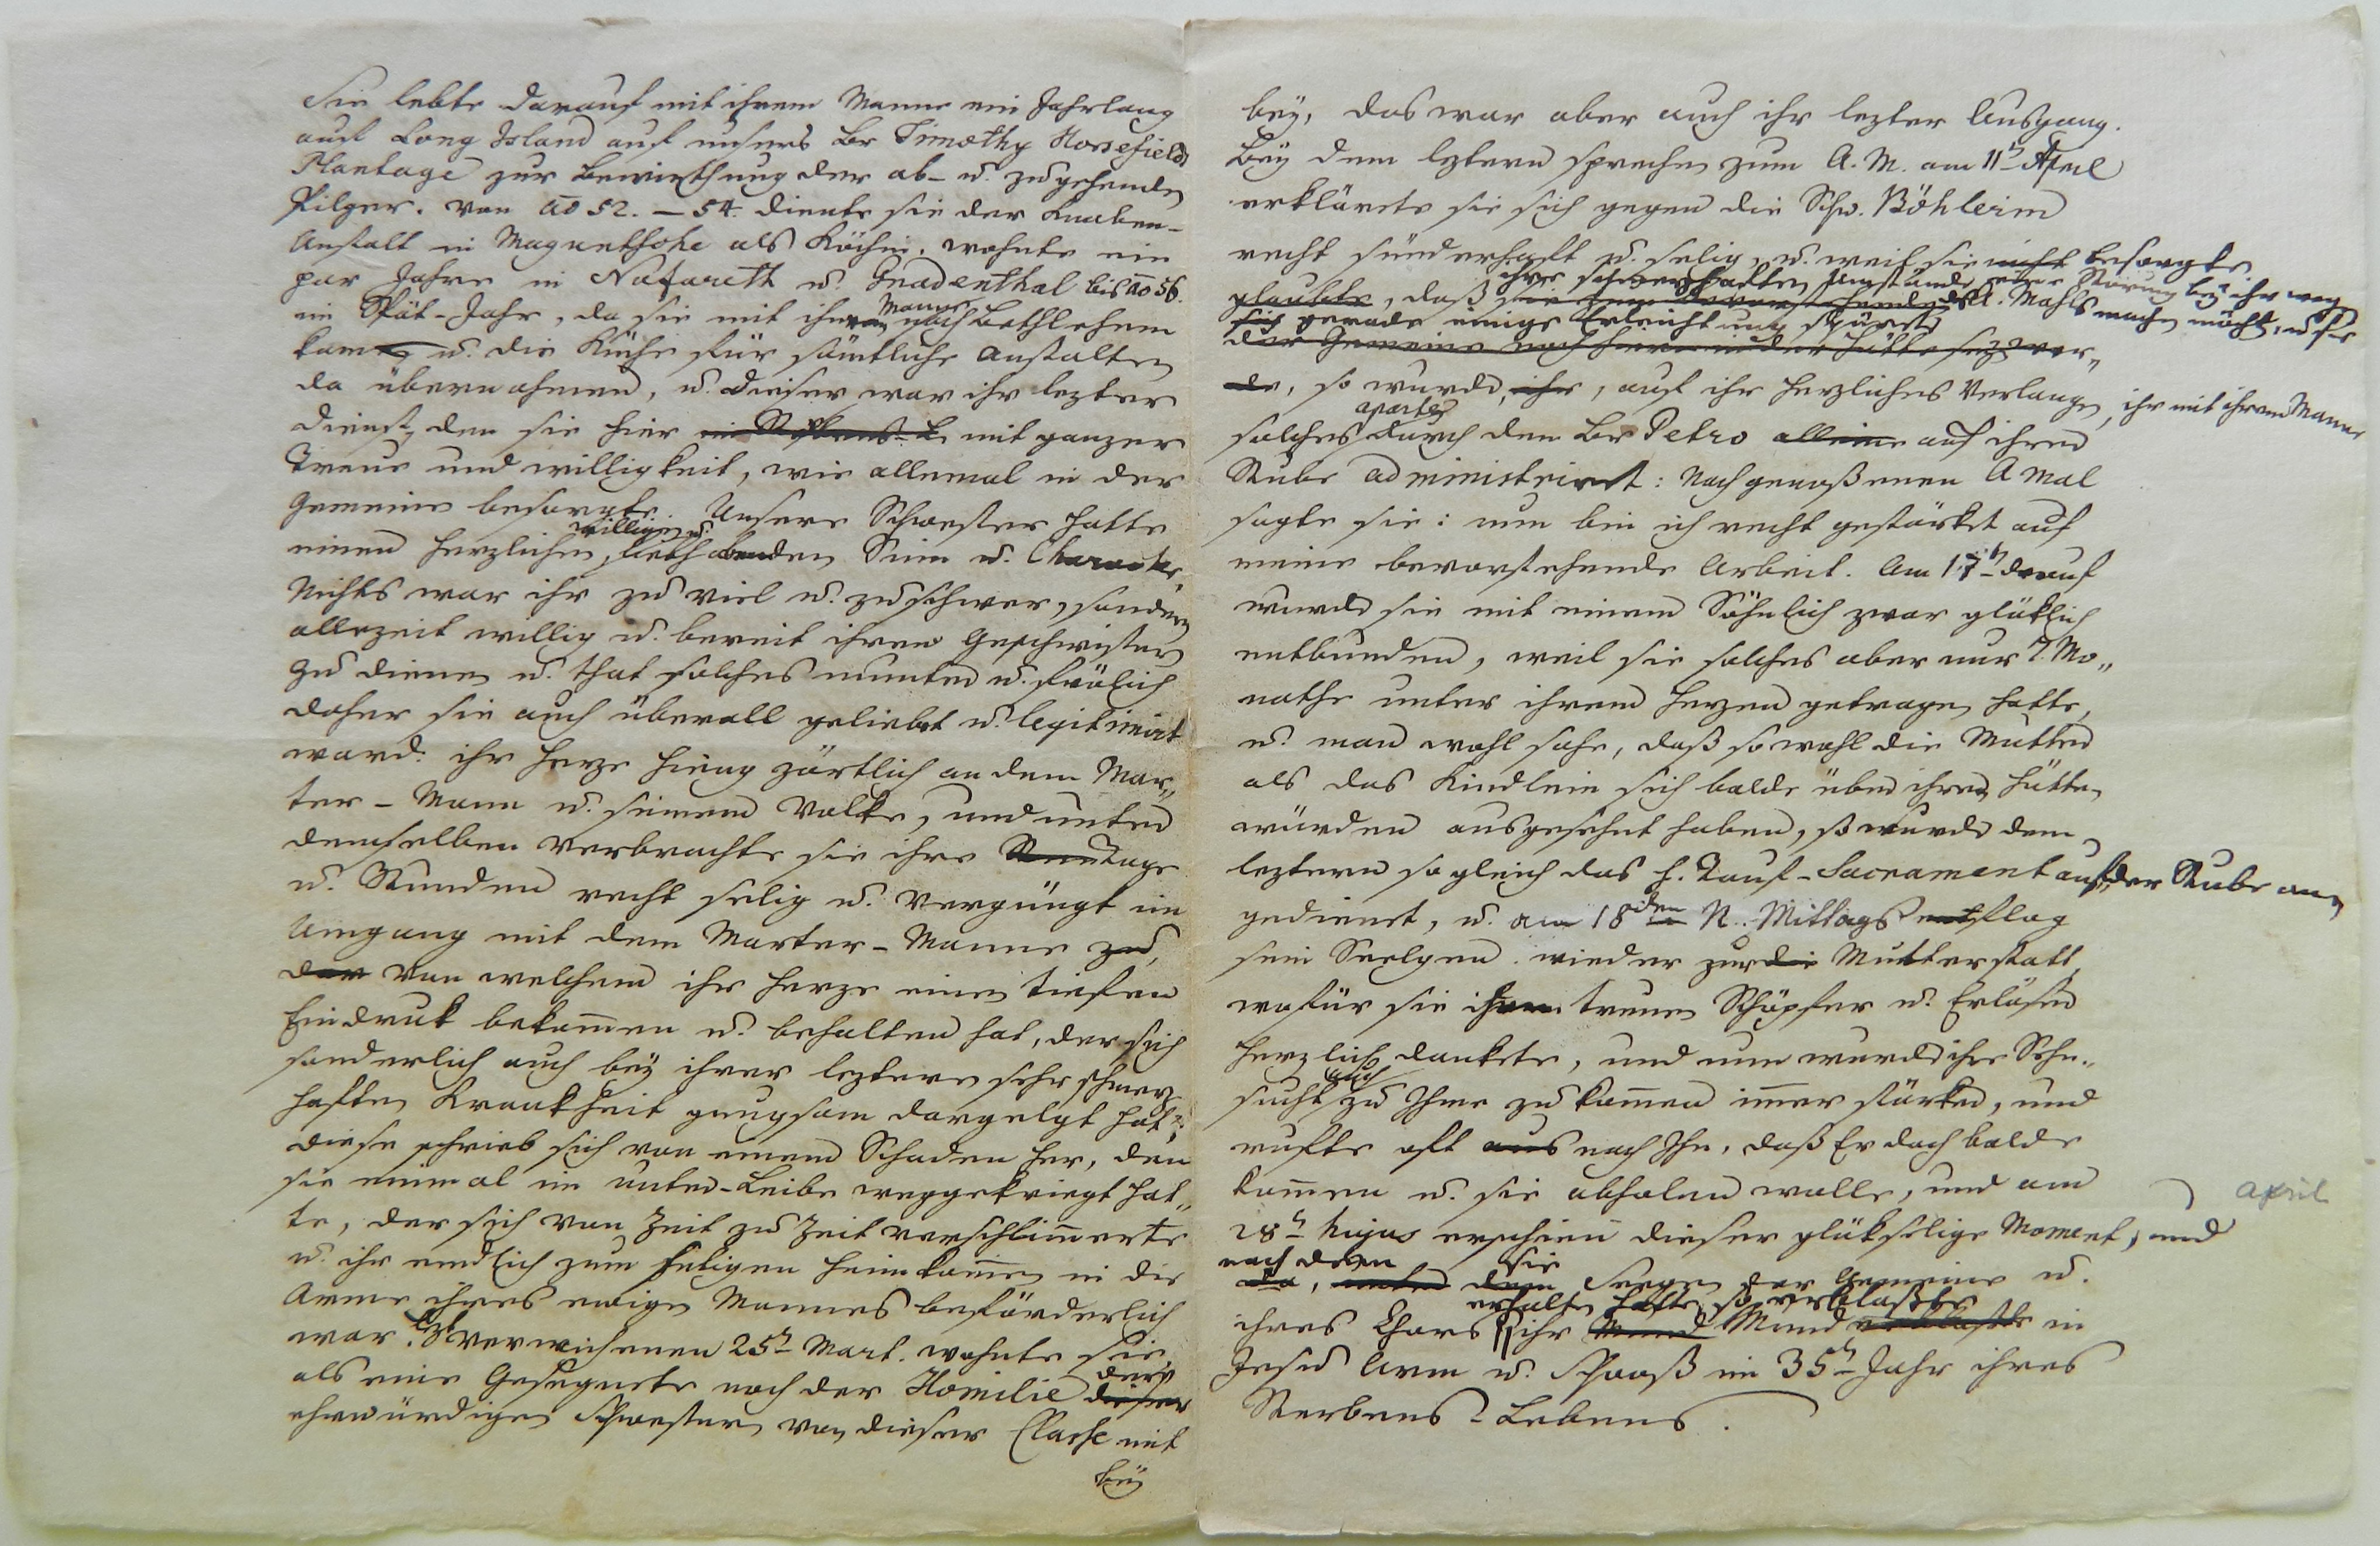 Sie lebte darauf mit ihrem Manne ein Jahrlang
auf Long Island auf unsers Br Timothy Horsefields
Plantage zur Bewirthung der ab- u. zugehenden
Pilger. Von ao 52. – 54. diente sie der Knaben-
Anstalt in Maguntsche als Köchin, wohnte ein
par Jahre in Nazareth u. Gnadenthal bis ao 56.
im Spät-Jahr, da sie mit ihrem Manne nach Bethlehem
kam u. die Küche für sämtliche Anstalten
da übernahmen, u. dieser war ihr lezter
Dienst, den sie hier mit ganzer
Treue und willigkeit, wie allemal in der
Gemeine besorgte. Unsere Schwester hatte
einen herzlichen, willigen u. liebhabenden Sinn u. Character,
Nichts war ihr zu viel u. zu schwer, sondern
allezeit willig u. bereit ihren Geschwistern
zu dienen u. that solches munter u. frölich
daher sie auch überall geliebet u. legitimirt
ward. ihr Herze hieng zärtlich an dem Mar„
ter-Mann u. seinem Volke, und unter
demselben verbrachte sie ihre Tage
u. Stunden recht selig u. vergnügt im
Umgang mit dem Marter-Manne zu,
der von welchem ihr Herze einen tiefen
Eindruk bekommen u. behalten hat, der sich
sonderlich auch bey ihrer leztern sehr schmerz
haften Krankheit genugsam dargelegt hat.
diese schrieb sich von einem Schaden her, den
sie einmal im unter-Leibe weggekriegt hat„
te, der sich von Zeit zu Zeit verschlimerte
u. ihr endlich zum seligen heimkommen in die
Arme ihres ewigen Mannes beförderlich
war. verwichenen 25t Mart. wohnte sie
als eine Gesegnete noch der Homilie derer dieser
ehrwürdigen Schwestern von dieser Classe mit
bey
bey, das war aber auch ihr lezter Ausgang.
Bey dem leztern sprechen zum A. M. am 11t April
erklärete sie sich gegen die Schw. Böhlerin
recht sünderhaft u. selig, u. weil sie nicht besorgte
glaubte, daß ihre schmerzhaften Umstände eine Störung bey ihr wegen
des A. Mahls machen möchte, u. sie
sich gerade einige Erleichterung spürete
der Gemeine nach seyn wer„
de, so wurde ihr, auf ihr herzliches Verlangen, ihr mit ihrem Manne
solches apartes durch den Br Petro alleine auf ihrer
Stube administrirt: Nach genoßenen A Mal
sagte sie: nun bin ich recht gestärket auf
meine bevorstehende Arbeit. Am 17t darauf
wurde sie mit einem Söhnlich zwar glüklich
entbunden, weil sie solches aber nur 7. Mo„
nathe unter ihrem Herzen getragen hatte,
u. man wohl sahe, daß sowohl die Mutter
als das Kindlein sich balde über ihren Hütten
würden ausgesehnt haben, so wurde dem
leztern sogleich das h. Tauf-Sacrament auf der Stube an„
gedienet, u. am 18den N. Mittags entflog
sein Seelgen wieder zur die Mutterstatt,
wofür sie ihrem treuen Schöpfer u. Erlöser
herzlich dankete, und nun wurde ihre Sehn„
sucht auch zu Ihme zu kommen immer stärker, und
rufte oft aus nach Ihn, daß Er doch balde
kommen u. sie abholen wolle, und am
april
28t hujus erschien dieser glükselige Moment, und
nach deme sie
da, unter dem Seegen der Gemeine u.
erhalten hatte, so verblaßte
ihres Chors ihr Mund Mund verblaßte in
Jesu Arm u. Schooß im 35t Jahr ihres
Sterbens-Lebens.